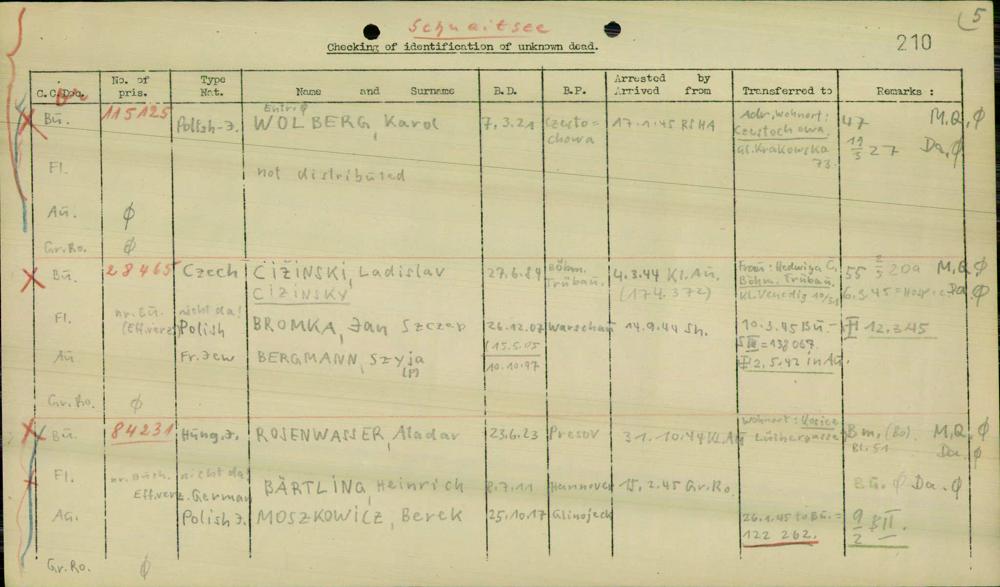 5
Schnaitsee
Checking of identification of unknown dead.
210
C.C.Doc. No. of pris. Type Nat. Name and Surname B.D. B.P. Arrested by Arrived from Transferred to Remarks :
Bu. 115125 Polish-J. WOLBERG, Karol 7.3.21 Czensto= chowa 17.1.45 RSHA Adr. wohnort: 47 M,Q,ϕ
Czestochowa, Gl. Krakowska 73. 19/3 27 Da,ϕ
Fl. not distributed
Au. ϕ
Gr.Ro. ϕ
Bu. 28465 Czech CIŽINSKI, Ladislav 27.6.84 Böhm. Trübau. 4.3.44 Kl.Au. Frau: Hedwiga C, 55 2/5 20a M,Q,ϕ
CIZINSKY (174.372) Böhm. Trübau. Da,ϕ
Kl. Venedig 10/51
Fl. nr. Bu. nicht da!
(Eff.verz. Polish BROMKA, Jan Szczep 26.12.07 Warschau 14.9.44 Sh. 10.3.45 Bu. 12.3.45
Au Fr.Jew BERGMANN, Szyja (15.5.05 =138067.
(?) 10.10.97 2.5.42 in Au.
Gr.Ro. ϕ
Bu. 84231 Hung.J. ROSENWASSER, Aladar 23.6.23 Presov 31.10.44 Kl.Au wohnort: Kosice Bm, (Bo). M,Q,ϕ
Luthergasse Bl. 51 Da.ϕ
Fl. nr. Buch. nicht da! Bu. ϕ Da.ϕ
Eff.verz. German BÄRTLING, Heinrich 8.7.11 Hannover 15.2.45 Gr.Ro.
Au. Polish J. MOSZKOWICZ, Berek 25.10.17 Glinojeck 26.1.45 to Bu.= 9/2 II.
122 262.
Gr.Ro. ϕ